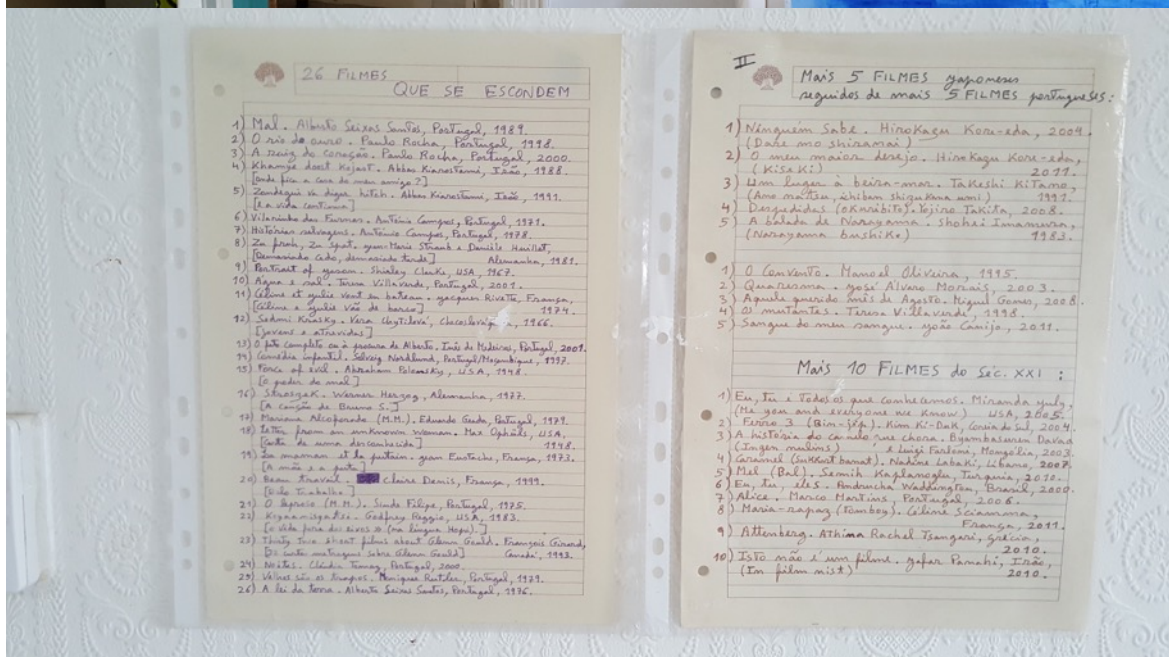 26 FILMES
QUE SE ESCONDEM
1) Mal. Alberto Seixas Santos, Portugal, 1989.
2) O rio do ouro. Paulo Rocha, Portugal, 1998.
3) A raiz do coração. Paulo Rocha, Portugal, 2000.
4) Khamye doost kojast. Abbas Kiarostami, Irão, 1988.
[onde fica a casa do meu amigo?]
5) Zendegui va digar hitch. Abbas Kiarostami, Irão, 1991.
[e a vida continua]
6) Vilarinho das Furnas. António Campos, Portugal, 1971.
7) Histórias selvagens. António Campos, Portugal, 1978.
8) Zu früh, Zu spat. Jean-Marie Straub e Danièle Huillet,
[Demasiado cedo, demasiado tarde] Alemanha, 1981.
9) Portrait of Jason. Shirley Clarke, USA, 1967.
10) Água e sal. Teresa Villaverde, Portugal, 2001.
11) Céline et Julie vont en bateau. Jacques Rivette, França,
[Céline e Julie vão de barco] 1974.
12) Sedmi Krasky. Vera Chytilová, 1966.
[jovens e atrevidas]
13) O fato completo ou à procura de Alberto. Inês de Medeiros, Portugal, 2001.
14) Comédia infantil. Solveig Nordlund, Portugal/Moçambique, 1997.
15) Force of evil. Abraham Polonsky, USA, 1948.
[o poder do mal]
16) Stroszek. Werner Herzog, Alemanha, 1977.
[A canção de Bruno S.]
17) Mariana Alcoforado (M.M.). Eduardo Geada, Portugal, 1979.
18) Letter from an unknown woman. Max Ophüls, USA,
[Carta de uma desconhecida] 1948.
19) La maman et la putain. Jean Eustache, França, 1973.
[A mãe e a puta]
20) Beau travail. Claire Denis, França, 1999.
[Belo Trabalho]
21) O leproso (M.M.). Sinde Filipe, Portugal, 1975.
22) Godfrey Reggio, USA, 1983.
[o vida fora dos eixos (na língua Hopi).]
23) Thirty Two short films about Glenn Gould. François Girard,
[32 curtas metragens sobre Glenn Gould] Canadá, 1993.
24) Noites. Cláudia Tomaz, Portugal, 2000.
25) Velhos são os trapos. Monique Rutler, Portugal, 1979.
26) A lei da terra. Alberto Seixas Santos, Portugal, 1976.
II
Mais 5 FILMES japoneses
seguidos de mais 5 FILMES portugueses:
1) Ninguém Sabe. Hirokazu Kore-eda, 2004.
(Dare mo shiranai)
2) O meu maior desejo. Hirokazu Kore-eda,
(Kiseki) 2011.
3) Um lugar à beira-mar. Takeshi Kitano,
(Ano natsu, ichiban shizukana umi) 1991.
4) Despedidas (okuribito). Yojiro Takita, 2008.
5) A balada de Narayama. Shohei Imamura,
(Narayama bushiko) 1983.
1) O Convento. Manoel Oliveira, 1995.
2) Quaresma. José Álvaro Morais, 2003.
3) Aquele querido mês de Agosto. Miguel Gomes, 2008.
4) Os mutantes. Teresa Villaverde, 1998.
5) Sangue do meu sangue. João Canijo, 2011.
Mais 10 FILMES do Séc. XXI :
1) Eu, tu e todos os que conhecemos. Miranda July,
(Me you and everyone we know) USA, 2005.
2) Ferro 3 (Bin-jip). Kim Ki-Duk, Coreia do sul, 2004.
3) A história do camelo que chora. Byambasuren Davaa
(Ingen nulims) e Luigi Farloni, Mongólia, 2003.
4) Caramel (Sukkar banat). Nadine Labaki, Líbano, 2007.
5) Mel (Bal). Semih Kaplanoglu, Turquia, 2010.
6) Eu, tu, eles. Andrucha Waddington, Brasil, 2000.
7) Alice. Marco Martins, Portugal, 2006.
8) Maria-rapaz (Tomboy). Céline Sciamma,
França, 2011.
9) Attenberg. Athina Rachel Tsangari, Grécia,
2010.
10) Isto não é um filme. Jafar Panahi, Irão,
(In film nist) 2010.